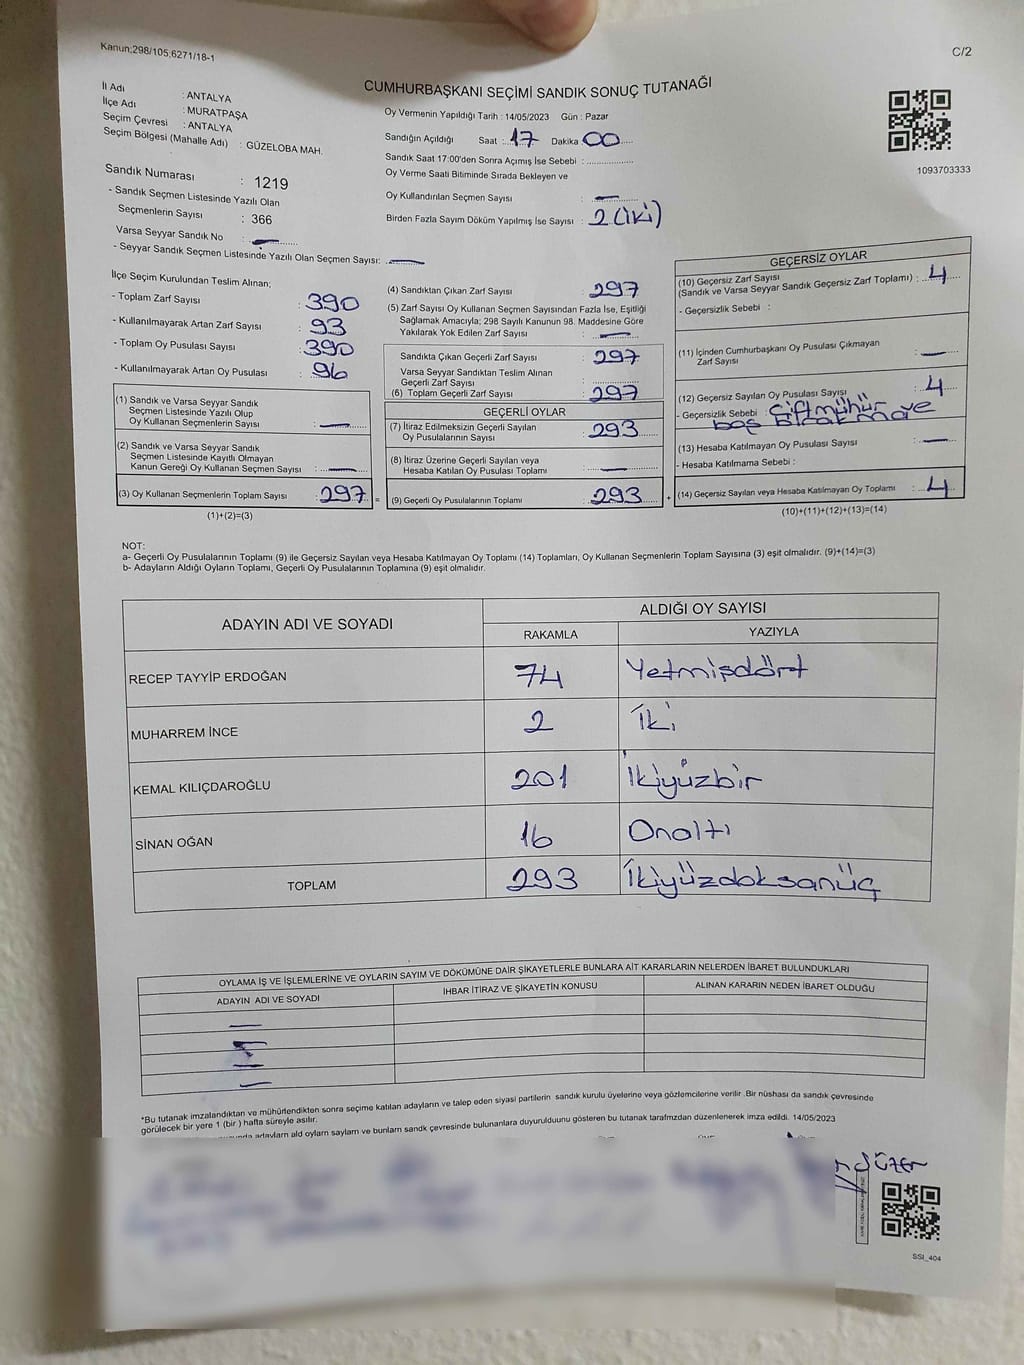 Kanun;298/105;6271/18-1
C/2
CUMHURBAŞKANI SEÇİMİ SANDIK SONUÇ TUTANAĞI
İl Adı : ANTALYA
İlçe Adı : MURATPAŞA
Seçim Çevresi : ANTALYA
Seçim Bölgesi (Mahalle Adı) : GÜZELOBA MAH.
Oy Vermenin Yapıldığı Tarih : 14/05/2023 Gün : Pazar
Sandığın Açıldığı Saat : 17 Dakika 00
Sandık Saat 17:00'den Sonra Açımış İse Sebebi :
Oy Verme Saati Bitiminde Sırada Bekleyen ve
Oy Kullandırılan Seçmen Sayısı : —
Birden Fazla Sayım Döküm Yapılmış İse Sayısı : 2 (iki)
1093703333
Sandık Numarası : 1219
- Sandık Seçmen Listesinde Yazılı Olan
Seçmenlerin Sayısı : 366
Varsa Seyyar Sandık No : —
- Seyyar Sandık Seçmen Listesinde Yazılı Olan Seçmen Sayısı: —
İlçe Seçim Kurulundan Teslim Alınan;
- Toplam Zarf Sayısı : 390
- Kullanılmayarak Artan Zarf Sayısı : 93
- Toplam Oy Pusulası Sayısı : 390
- Kullanılmayarak Artan Oy Pusulası : 96
(1) Sandık ve Varsa Seyyar Sandık
Seçmen Listesinde Yazılı Olup
Oy Kullanan Seçmenlerin Sayısı : —
(2) Sandık ve Varsa Seyyar Sandık
Seçmen Listesinde Kayıtlı Olmayan
Kanun Gereği Oy Kullanan Seçmen Sayısı : —
(3) Oy Kullanan Seçmenlerin Toplam Sayısı : 297 =
(1)+(2)=(3)
(4) Sandıktan Çıkan Zarf Sayısı : 297
(5) Zarf Sayısı Oy Kullanan Seçmen Sayısından Fazla İse, Eşitliği
Sağlamak Amacıyla; 298 Sayılı Kanunun 98. Maddesine Göre
Yakılarak Yok Edilen Zarf Sayısı : —
Sandıkta Çıkan Geçerli Zarf Sayısı : 297
Varsa Seyyar Sandıktan Teslim Alınan
Geçerli Zarf Sayısı :
(6) Toplam Geçerli Zarf Sayısı : 297
GEÇERLİ OYLAR
(7) İtiraz Edilmeksizin Geçerli Sayılan
Oy Pusulalarının Sayısı : 293
(8) İtiraz Üzerine Geçerli Sayılan veya
Hesaba Katılan Oy Pusulası Toplamı : —
(9) Geçerli Oy Pusulalarının Toplamı : 293 +
GEÇERSİZ OYLAR
(10) Geçersiz Zarf Sayısı
(Sandık ve Varsa Seyyar Sandık Geçersiz Zarf Toplamı) : 4
- Geçersizlik Sebebi :
(11) İçinden Cumhurbaşkanı Oy Pusulası Çıkmayan
Zarf Sayısı : —
(12) Geçersiz Sayılan Oy Pusulası Sayısı : 4
- Geçersizlik Sebebi : Çift mühür ve
boş bırakma
(13) Hesaba Katılmayan Oy Pusulası Sayısı : —
- Hesaba Katılmama Sebebi :
(14) Geçersiz Sayılan veya Hesaba Katılmayan Oy Toplamı : 4
(10)+(11)+(12)+(13)=(14)
NOT:
a- Geçerli Oy Pusulalarının Toplamı (9) ile Geçersiz Sayılan veya Hesaba Katılmayan Oy Toplamı (14) Toplamları, Oy Kullanan Seçmenlerin Toplam Sayısına (3) eşit olmalıdır. (9)+(14)=(3)
b- Adayların Aldığı Oyların Toplamı, Geçerli Oy Pusulalarının Toplamına (9) eşit olmalıdır.
ADAYIN ADI VE SOYADI
ALDIĞI OY SAYISI
RAKAMLA YAZIYLA
RECEP TAYYİP ERDOĞAN 74 Yetmişdört
MUHARREM İNCE 2 İki
KEMAL KILIÇDAROĞLU 201 İkiyüzbir
SİNAN OĞAN 16 Onaltı
TOPLAM 293 İkiyüzdoksanüç
OYLAMA İŞ VE İŞLEMLERİNE VE OYLARIN SAYIM VE DÖKÜMÜNE DAİR ŞİKAYETLERLE BUNLARA AİT KARARLARIN NELERDEN İBARET BULUNDUKLARI
ADAYIN ADI VE SOYADI İHBAR İTİRAZ VE ŞİKAYETİN KONUSU ALINAN KARARIN NEDEN İBARET OLDUĞU
*Bu tutanak imzalandıktan ve mühürlendikten sonra seçime katılan adayların ve talep eden siyasi partilerin sandık kurulu üyelerine veya gözlemcilerine verilir .Bir nüshası da sandık çevresinde
görülecek bir yere 1 (bir ) hafta süreyle asılır.
adayların ald oyların sayların ve bunların sandk çevresinde bulunanlara duyurulduunu gösteren bu tutanak tarafmzdan düzenlenerek imza edildi. 14/05/2023
SSI_404